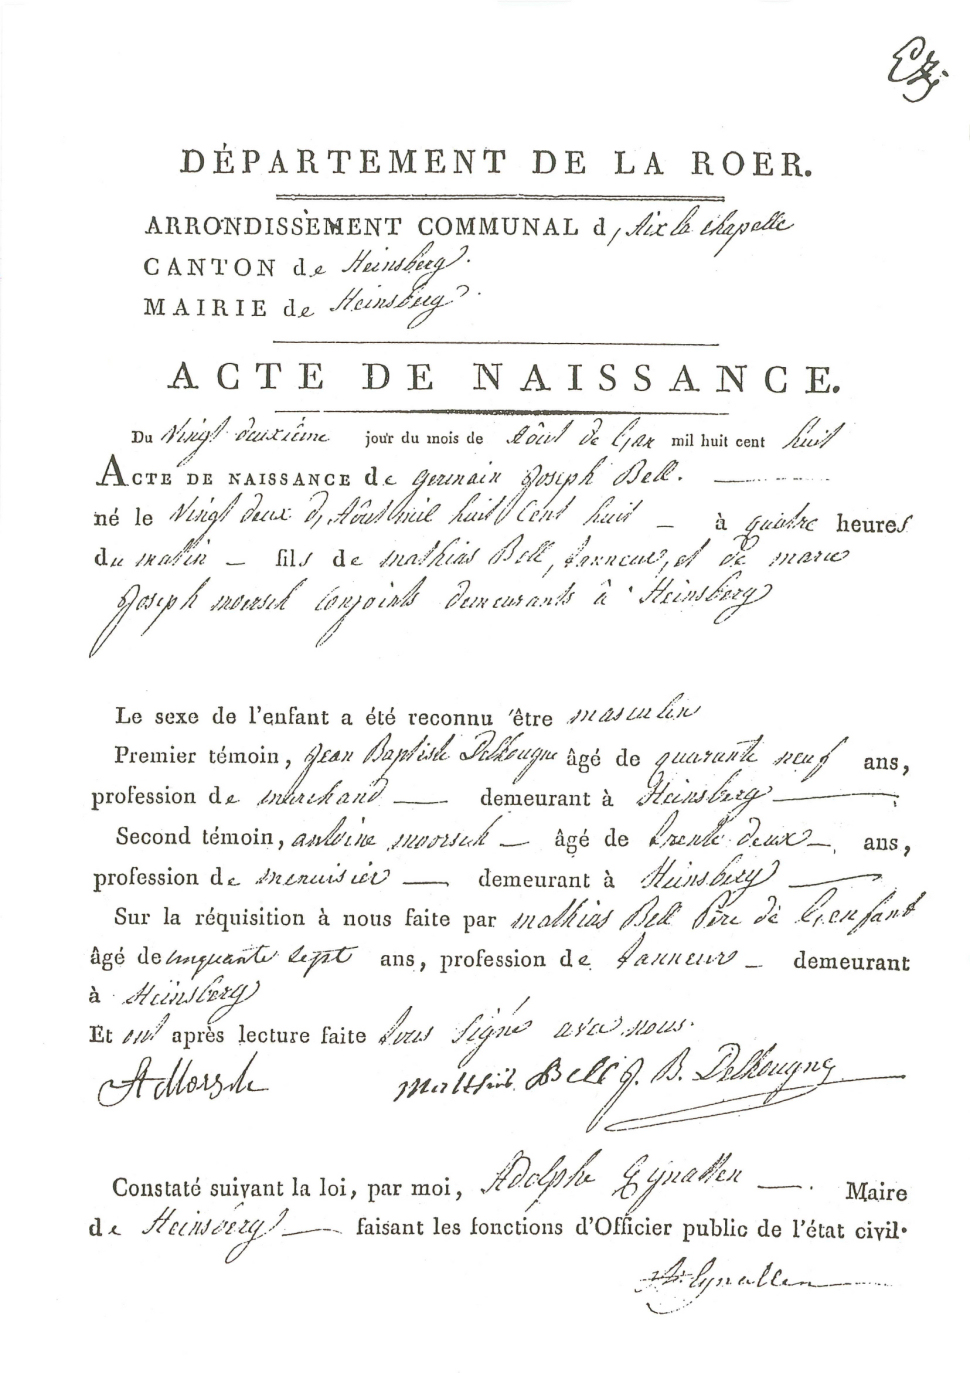 DÉPARTEMENT DE LA ROER.
ARRONDISSÈMENT COMMUNAL d, Aix la Chapelle
CANTON de Heinsberg.
MAIRIE de Heinsberg.
ACTE DE NAISSANCE.
Du Vingt deuxième jour du mois de Aôut de l'an mil huit cent huit
ACTE DE NAISSANCE de germain Joseph Bell.
né le Vingt deux d, Aôut mil huit Cent huit — à quatre heures
du matin — fils de mathias Bell, tanneur, et de marie
Joseph moersch Conjoints demeurants à Heinsberg
Le sexe de l'enfant a été reconnu être masculin
Premier témoin, Jean Baptiste Delhougne âgé de quarante neuf ans,
profession de marchand — demeurant à Heinsberg —
Second témoin, antoine moersch — âgé de trente deux — ans,
profession de menuisier — demeurant à Heinsberg —
Sur la réquisition à nous faite par mathias Bell Père de l'enfant
âgé de cinquante sept ans, profession de tanneur — demeurant
à Heinsberg
Et ont après lecture faite tous Signé avec nous.
Matthias Bell J. B. Delhougne
Constaté suivant la loi, par moi, Adolphe Eynatten — Maire
de Heinsberg — faisant les fonctions d'Officier public de l'état civil.
A. Eynatten